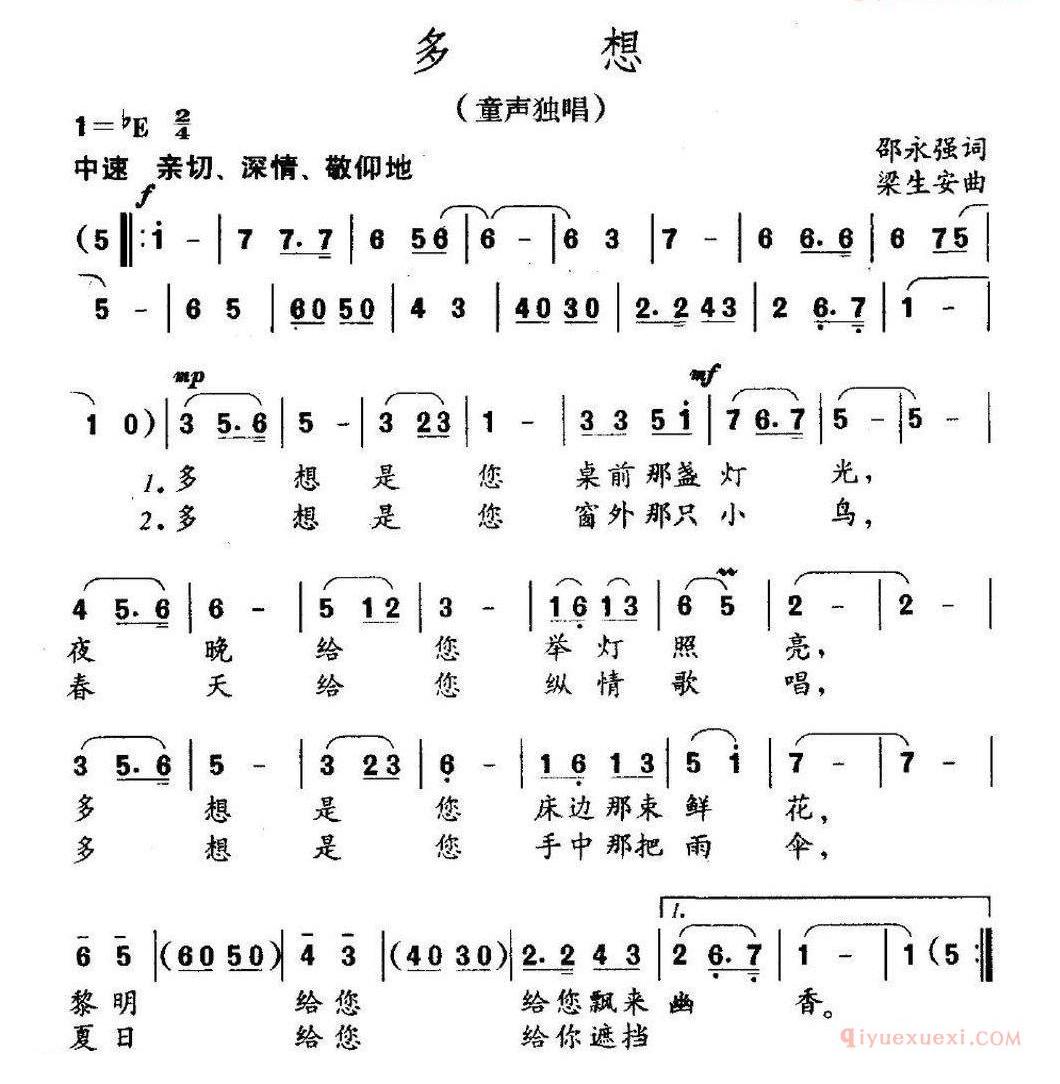 多 想
(童声独唱)
1=♭E 2/4
中速 亲切、深情、敬仰地
邵永强词
梁生安曲
f
(5 ‖: i - | 7 7. 7 | 6 56 | 6 - | 6 3 | 7 - | 6 6. 6 | 6 75 |
5 - | 6 5 | 60 50 | 4 3 | 40 30 | 2. 2 43 | 2 6. 7 | 1 - |
mp mf
1 0) | 3 5. 6 | 5 - | 3 23 | 1 - | 3 3 5 i | 7 6. 7 | 5 - | 5 - |
1. 多 想 是 您 桌前那盏 灯 光,
2. 多 想 是 您 窗外那只 小 鸟,
4 5. 6 | 6 - | 5 12 | 3 - | 16 13 | 6 5 | 2 - | 2 - |
夜 晚 给 您 举 灯 照 亮,
春 天 给 您 纵 情 歌 唱,
3 5. 6 | 5 - | 3 23 | 6 - | 1 6 1 3 | 5 i | 7 - | 7 - |
多 想 是 您 床边那束 鲜 花,
多 想 是 您 手中那把 雨 伞,
1.
6 5 | (60 50) | 4 3 | (40 30) | 2. 2 4 3 | 2 6. 7 | 1 - | 1 (5 :‖
黎明 给您 给您飘来 幽 香。
夏日 给您 给你遮挡
qiyuexuexi.com